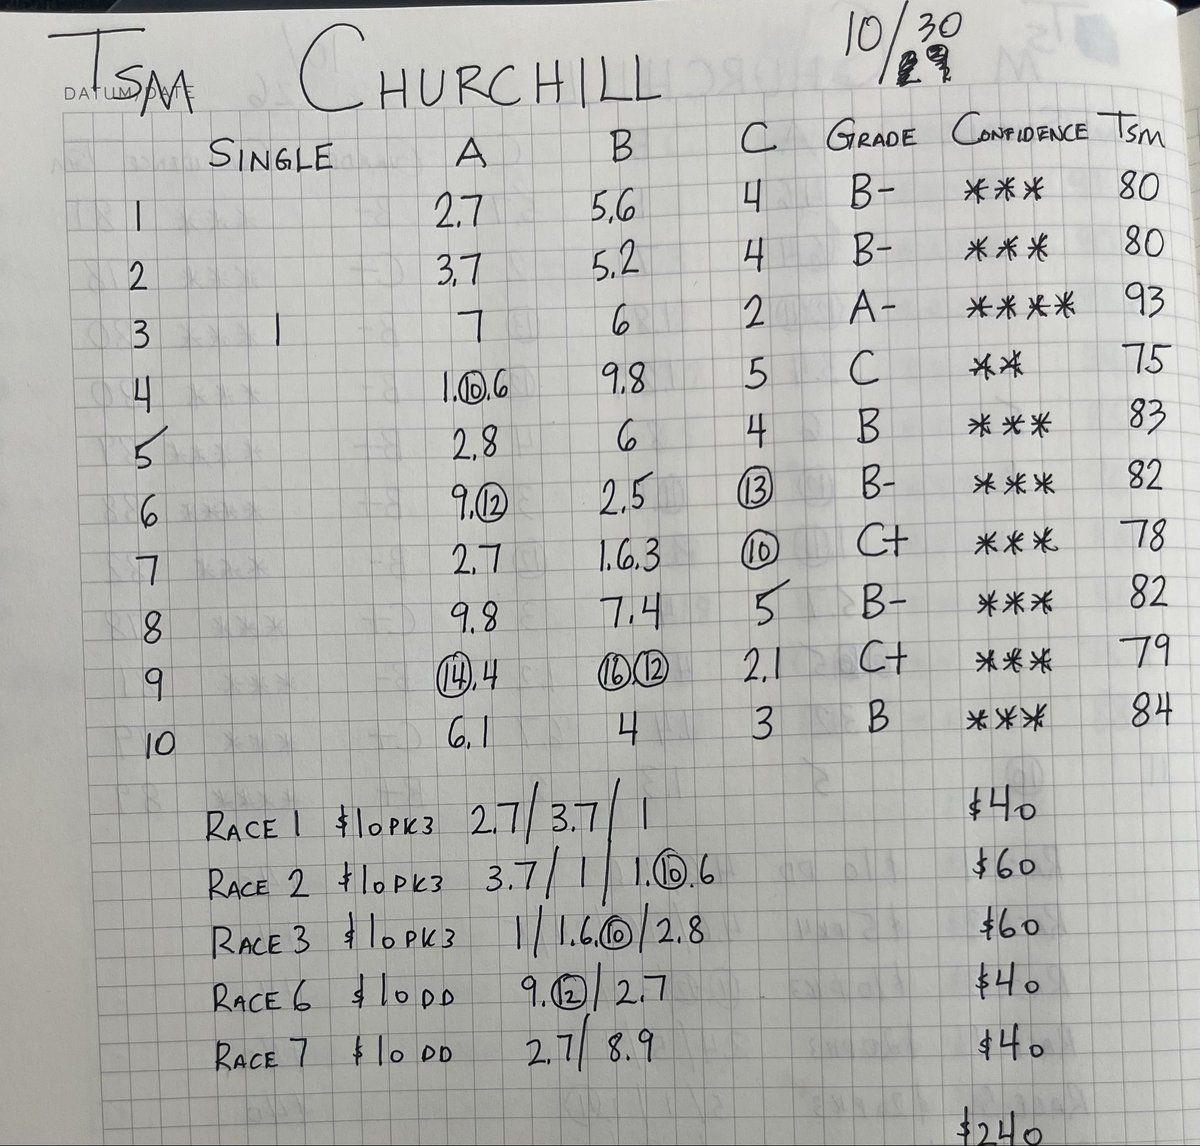 TSM CHURCHILL 10/30
DATUM/DATE
SINGLE A B C GRADE CONFIDENCE TSM
1 2,7 5,6 4 B- *** 80
2 3,7 5,2 4 B- *** 80
3 1 7 6 2 A- **** 93
4 1.10.6 9,8 5 C ** 75
5 2,8 6 4 B *** 83
6 9.12 2,5 13 B- *** 82
7 2,7 1.6.3 10 C+ *** 78
8 9,8 7.4 5 B- *** 82
9 14.4 16.12 2,1 C+ *** 79
10 6,1 4 3 B *** 84
RACE 1 $10 PK3 2.7/3.7/1 $40
RACE 2 $10 PK3 3.7/1/1.10.6 $60
RACE 3 $10 PK3 1/1.6.10/2.8 $60
RACE 6 $10 DD 9.12/2.7 $40
RACE 7 $10 DD 2.7/8.9 $40
$240